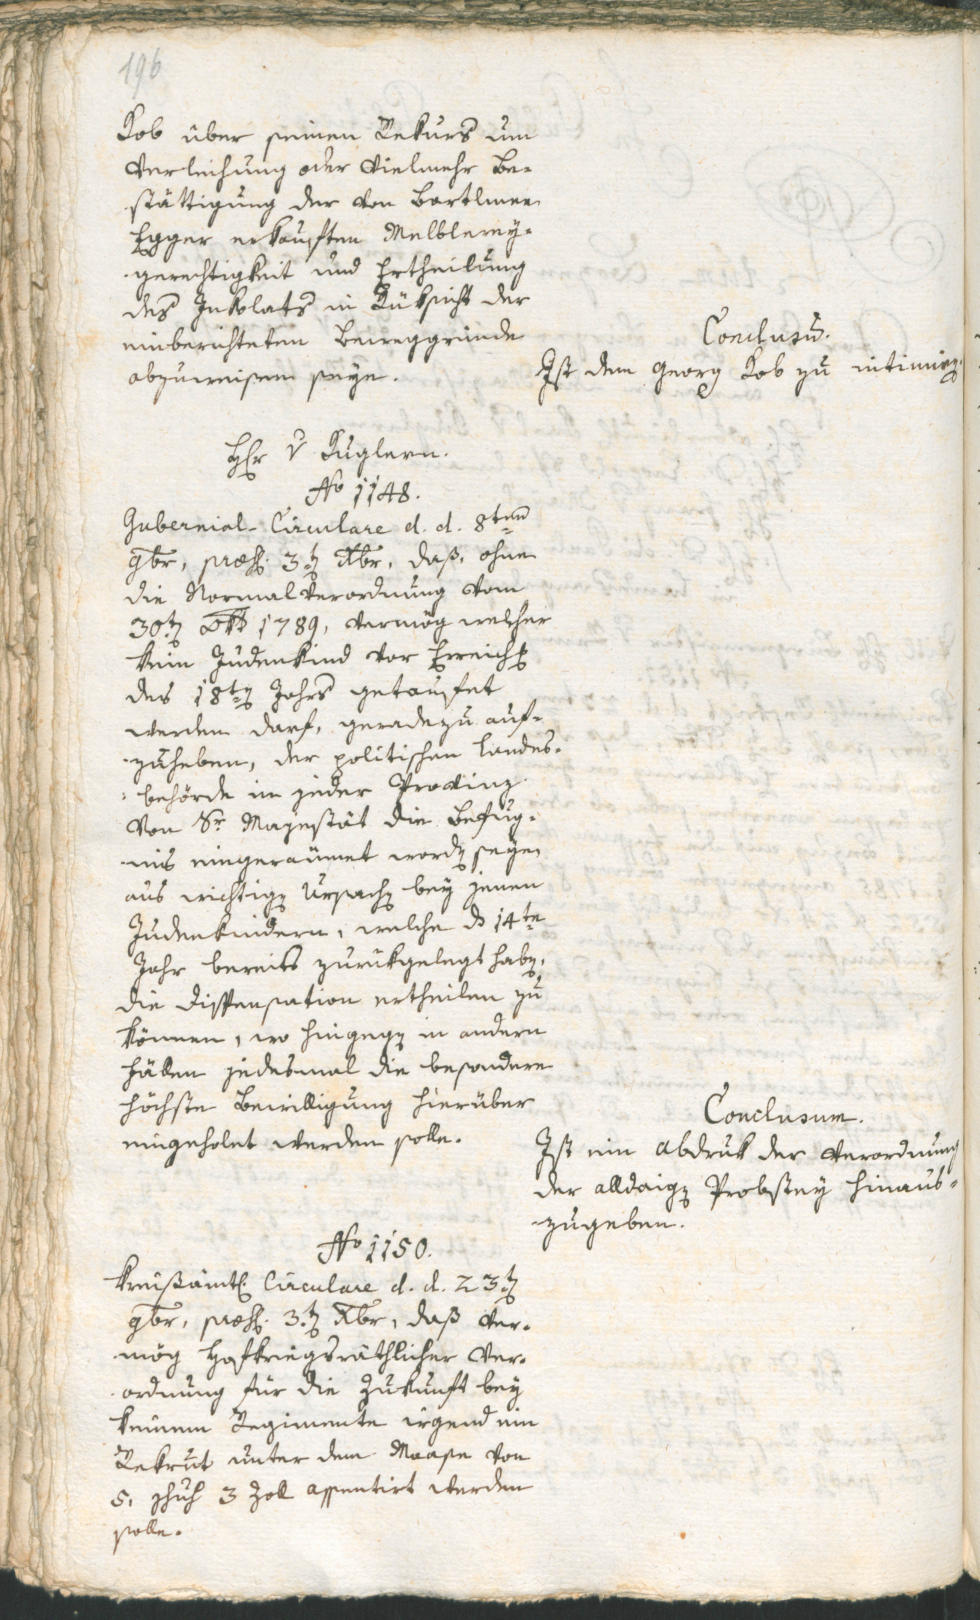 196
Kob über seinen Rekurs um
Verleihung oder vielmehr Be-
stättigung der von Bartlmee
Egger erkauften Melblerey-
gerechtigkeit und Ertheilung
des Inkolats in Rüksicht der
einberichteten Beweggründe
abzuweisen seye.
Conclusũ.
Ist dem Georg Kob zu intimirẽ.
Hr v Kuglern.
No 1148.
Gubernial-Circulare d. d. 8ten
9br, præs. 3t. Xbr, daß, ohne
die Normalverordnung vom
30t. Okt 1789, vermög welcher
kein Judenkind vor Erreich
des 18t. Jahrs getaufet
werden darf, geradezu auf-
zuheben, der politischen Landes-
behörde in jeder Provinz
von Sr Majestät die Befug-
nis eingeraumet word. seye,
aus wichtig. Ursach. bey jenen
Judenkindern, welche d 14te
Jahr bereits zurükgelegt hab.,
die Dispensation ertheilen zu
können, wo hingeg. in andern
Fällen jedesmal die besondere
höchste Bewilligung hierüber
eingeholet werden solle.
Conclusum.
Ist ein Abdruk der Verordnung
der alldaig. Probstey hinaus-
zugeben.
No 1150.
Kreisämtl. Circulare d. d. 23t.
9br, præs. 3.t. Xbr, daß ver-
mög Hofkriegsräthlicher Ver-
ordnung für die Zukunft bey
keinem Regimente irgend ein
Rekrut unter dem Maase von
5. Schuh 3 Zoll assentirt werden
solle.